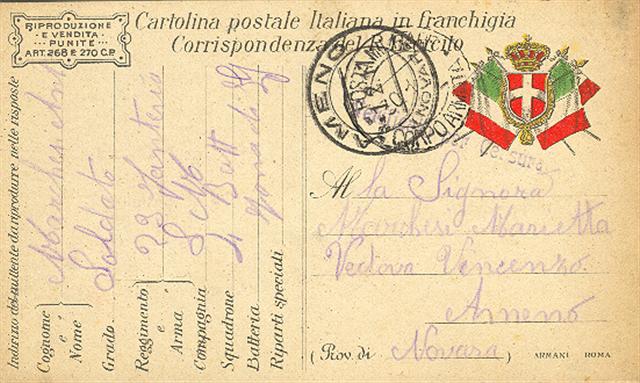 RIPRODUZIONE
E VENDITA
PUNITE
ART. 268 E 270 C.P.
Cartolina postale Italiana in franchigia
Corrispondenza del R. Esercito
AMENO
POSTA
Al la Signora
Marchesi Marietta
Vedova Vencenzo
Ameno
(Prov. di Novara )
ARMANI ROMA
Indirizzo del mittente da riprodurre nelle risposte
Cognome e Nome Marchesi
Grado Soldato
Reggimento e Arma 23 Fanteria
Compagnia
Squadrone 4 Batt
Batteria
Riparti speciali